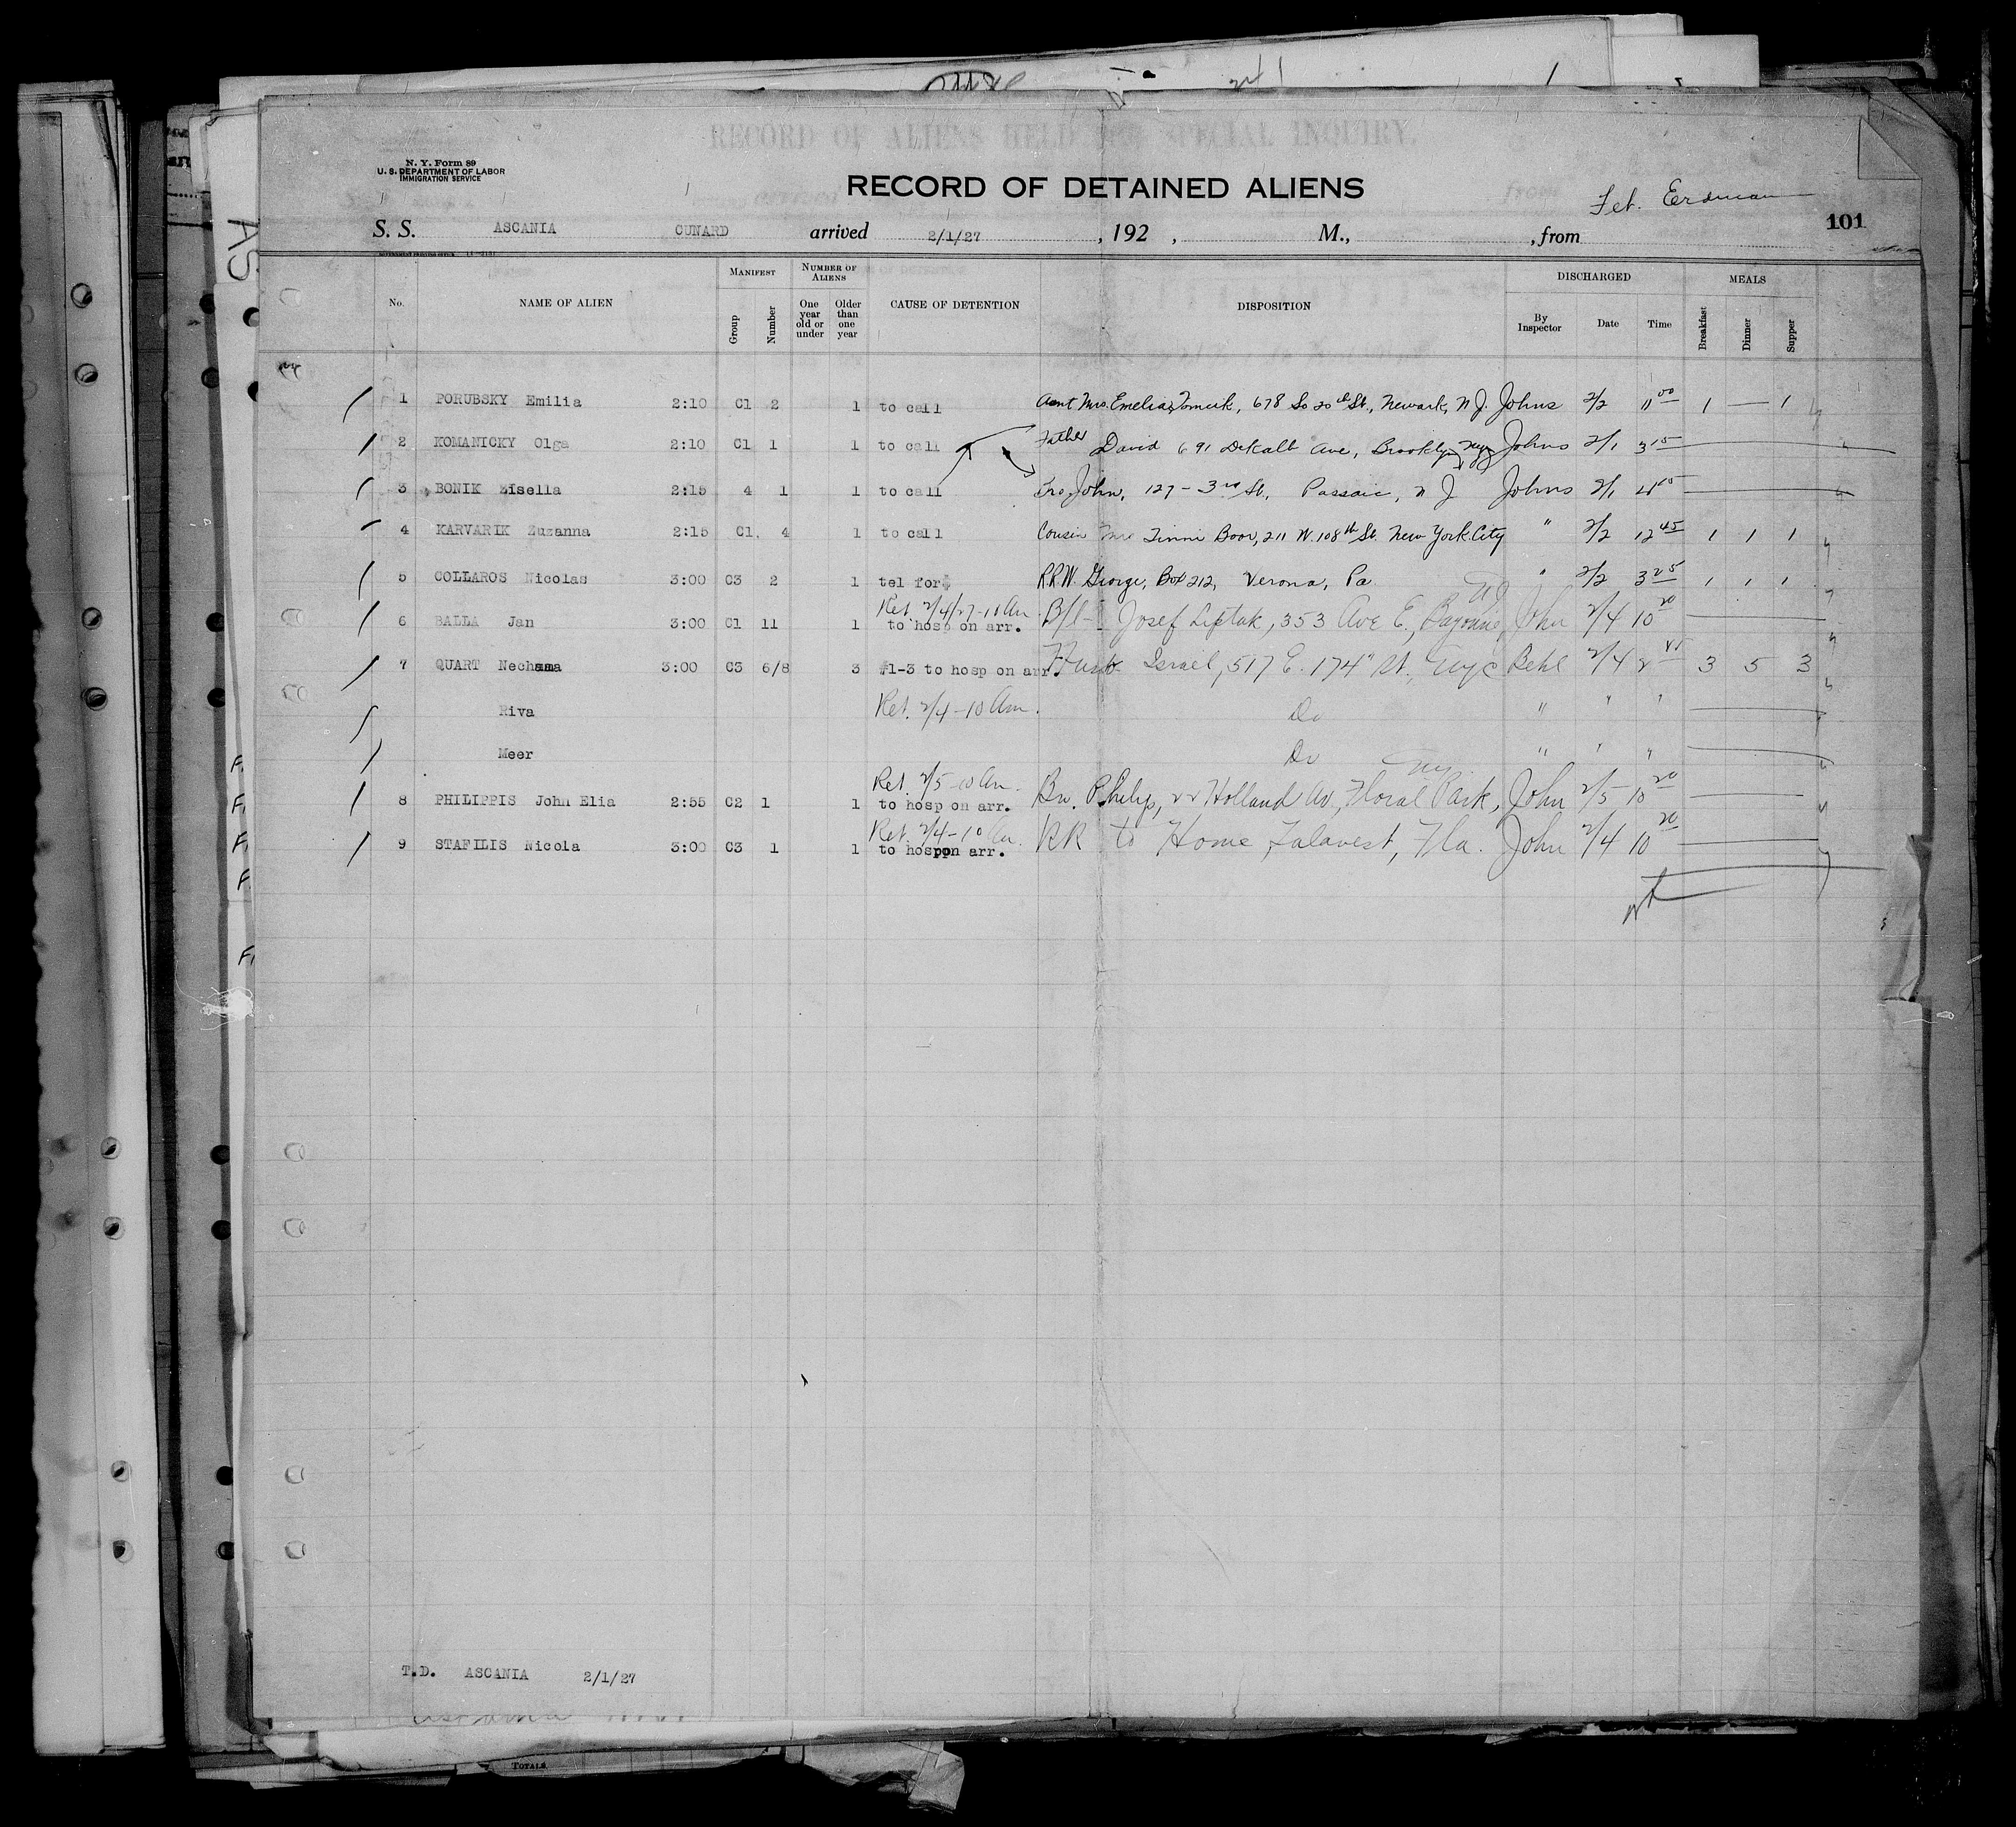 RECORD OF ALIENS HELD FOR SPECIAL INQUIRY.
N. Y. Form 89
U. S. DEPARTMENT OF LABOR
IMMIGRATION SERVICE
RECORD OF DETAINED ALIENS
Erdman
101
S. S. ASCANIA CUNARD arrived 2/1/27, 192 , M., , from
No. NAME OF ALIEN MANIFEST Group Number NUMBER OF ALIENS One year old or under Older than one year CAUSE OF DETENTION DISPOSITION DISCHARGED By Inspector Date Time MEALS Breakfast Dinner Supper
1 PORUBSKY Emilia 2:10 C1 2 1 to call Aunt Mrs. Emelia 678 So 20th St., Newark, N J. Johns 2/2 11 00 1 — 1
2 KOMANICKY Olga 2:10 C1 1 1 to call Father David 691 DeKalb Ave, Brooklyn Johns 2/1 3 15
3 BONIK Zisella 2:15 4 1 1 to call Bro. John, 127 - 3rd St. Passaic, N J Johns 2/1
4 KARVARIK Zuzanna 2:15 C1. 4 1 to call Cousin Mrs 211 W. 108th St. New York City " 2/2 12 45 1 1 1
5 COLLAROS Nicolas 3:00 C3 2 1 tel for RRW. George, Box 212, Verona, Pa " 2/2 3 25 1 1 1
Ret 2/4/27 - 10 Am
6 BALLA Jan 3:00 C1 11 1 to hosp on arr. B/l - Josef Liptak, 353 Ave E., Bayonne, NJ John 2/4 10 20
7 QUART Nechama 3:00 C3 6/8 3 #1-3 to hosp on arr. Husb Israel, 517 E. 174" St., NYC Behl 2/4 3 5 3
Riva Ret. 2/4 - 10 Am. Do " " "
Meer Do " " "
Ret. 2/5 - 10 Am.
8 PHILIPPIS John Elia 2:55 C2 1 1 to hosp on arr. Philip, 22 Holland Av, Floral Park, NY John 2/5 10 20
Ret 2/4 - 10 Am.
9 STAFILIS Nicola 3:00 C3 1 1 to hosppn arr. RR to Home Fla. John 2/4 10 20
T.D. ASCANIA 2/1/27
TOTALS